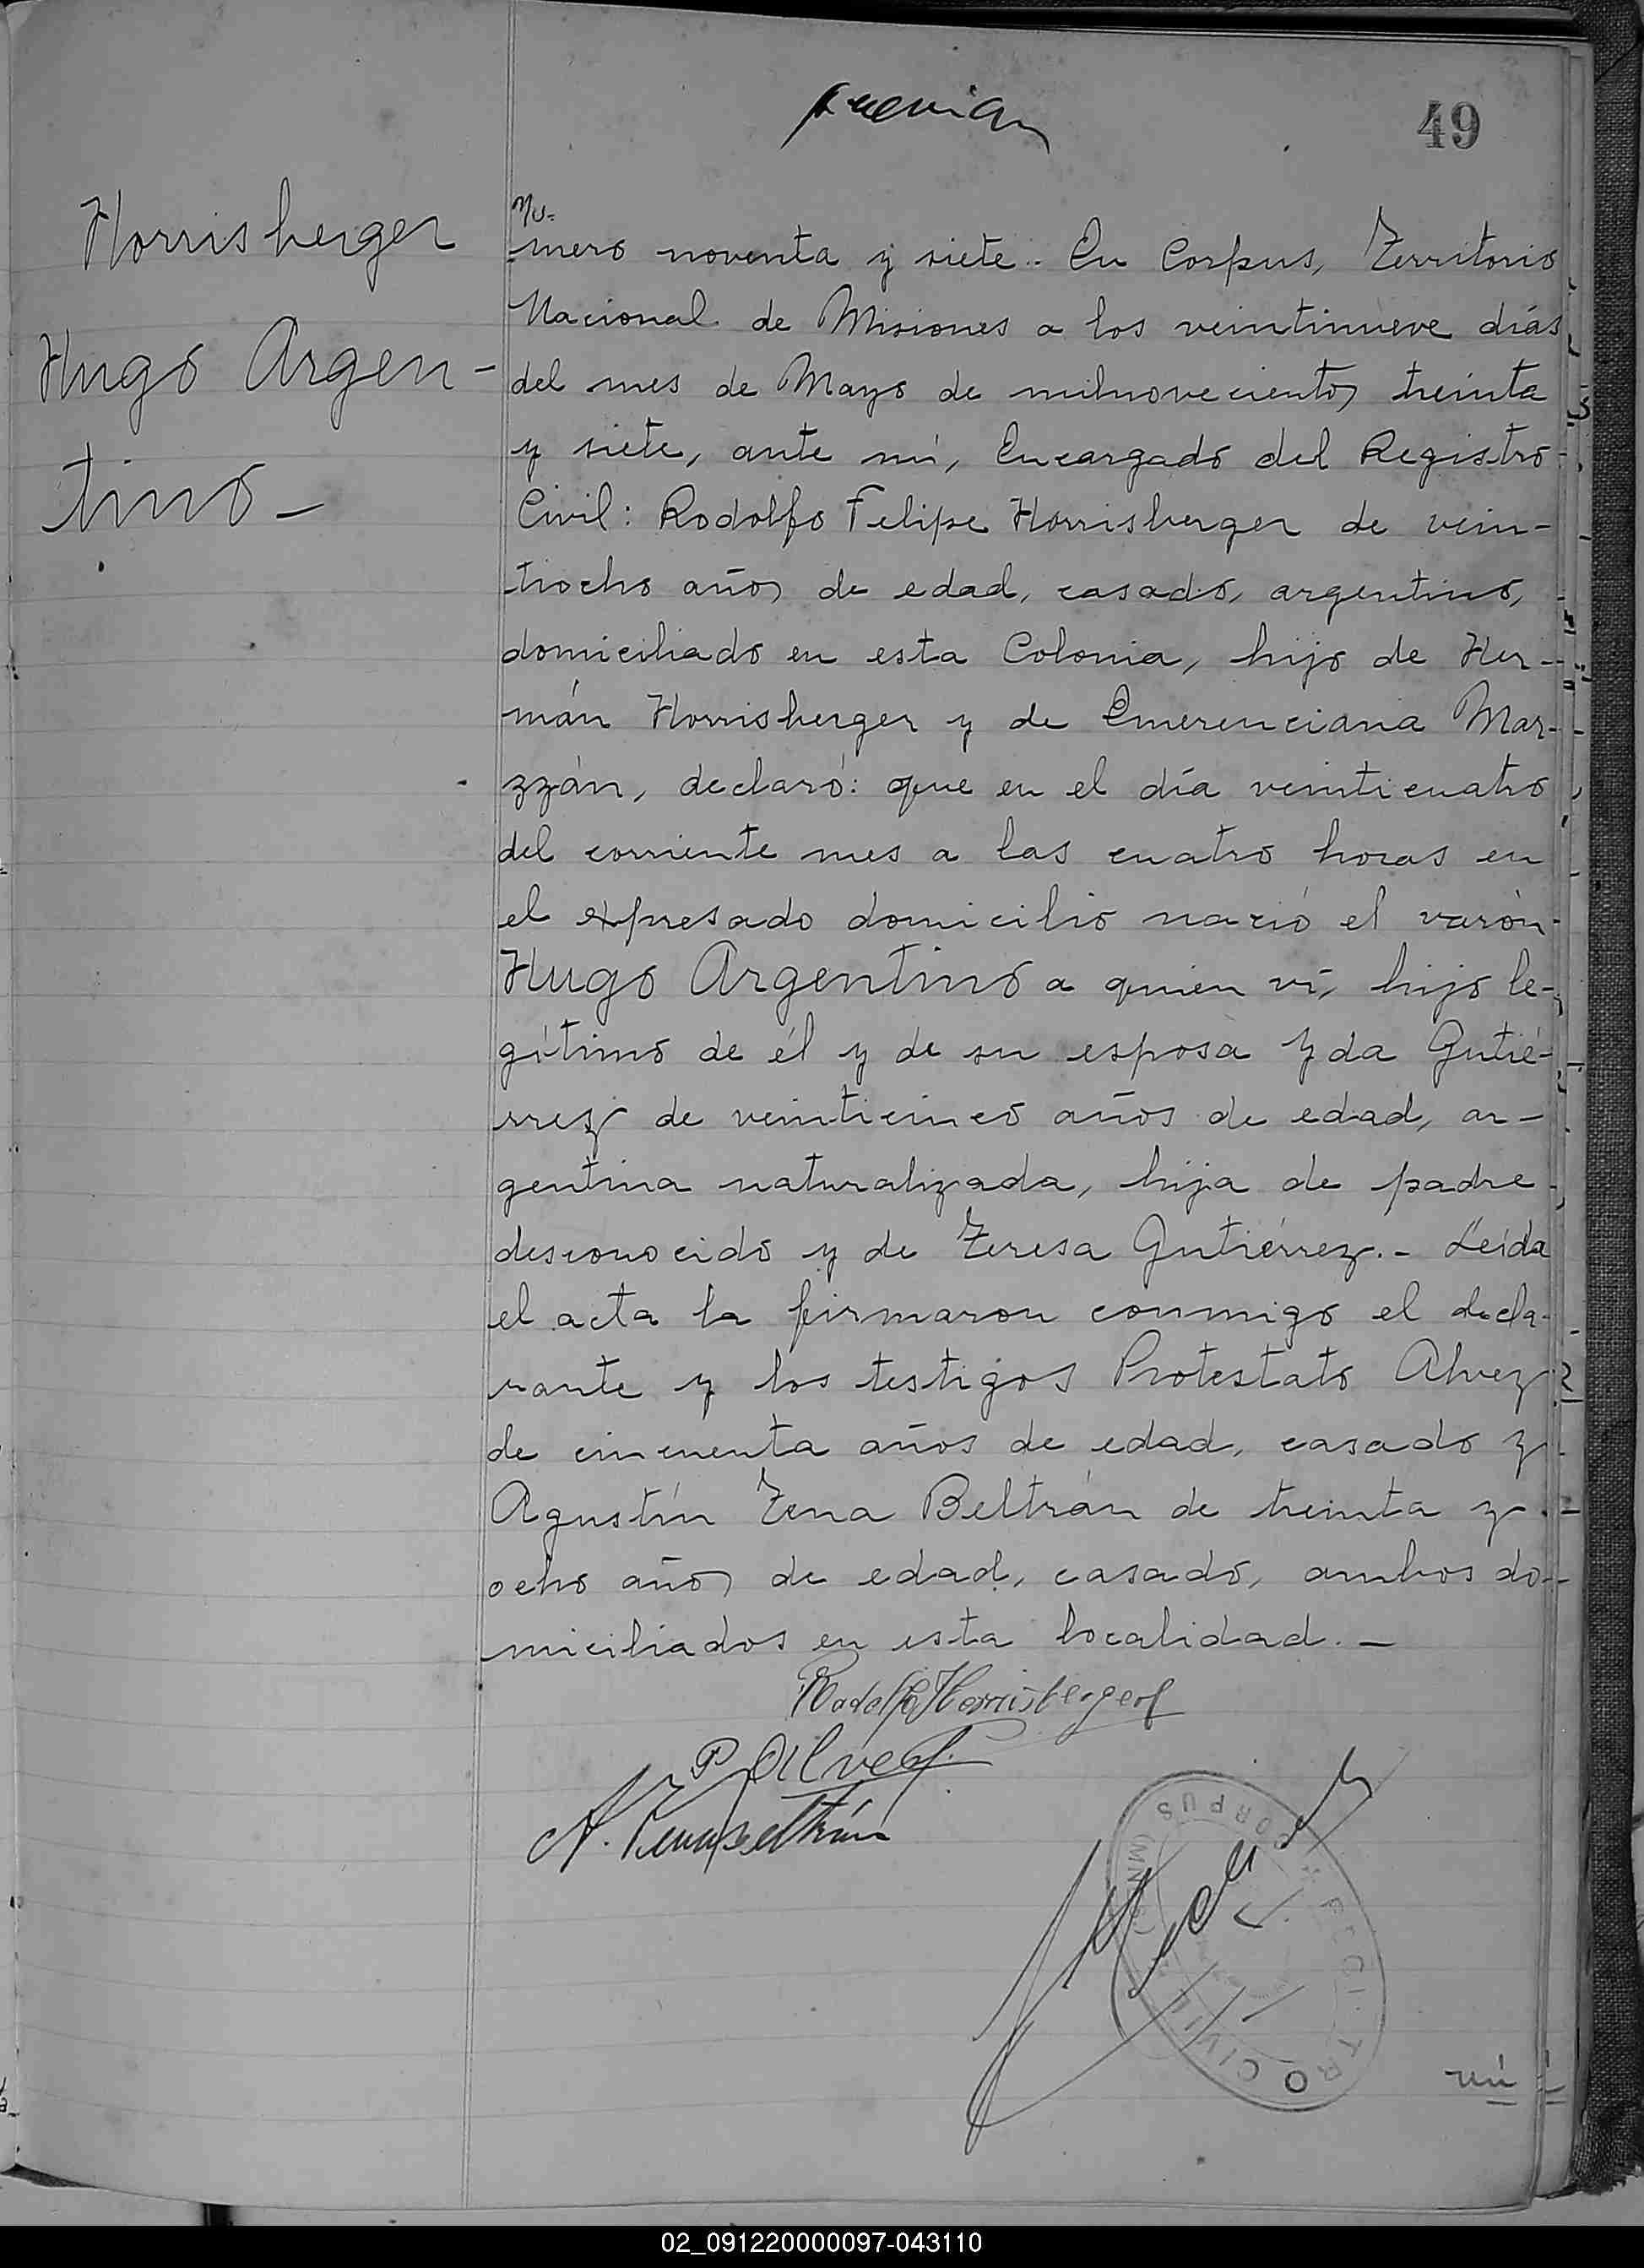 49
Horrisberger
Hugo Argen-
tino-
Nú-
mero noventa y siete.- En Corpus, Territorio
Nacional de Misiones a los veintinueve días
del mes de Mayo de milnovecientos treinta
y siete, ante mí, Encargado del Registro
Civil: Rodolfo Felipe Horrisberger de vein-
tiocho años de edad, casado, argentino,
domiciliado en esta Colonia, hijo de Her-
mán Horrisberger y de Emerenciana Mar-
zzán, declaró: que en el día veinticuatro
del corriente mes a las cuatro horas en
el expresado domicilio nació el varón
Hugo Argentino a quien ví, hijo le-
gítimo de él y de su esposa Yda Gutié-
rrez de veinticinco años de edad, ar-
gentina naturalizada, hija de padre
desconocido y de Teresa Gutiérrez.- Leída
el acta la firmaron conmigo el decla-
rante y los testigos Protestato Alvez
de cincuenta años de edad, casado y
Agustín Tena Beltrán de treinta y
ocho años de edad, casado, ambos do-
miciliados en esta localidad.-
Rodolfo Horrisberger
P. Alvez
A. Tena Beltrán
REGISTRO CIVIL CORPUS
02_091220000097-043110